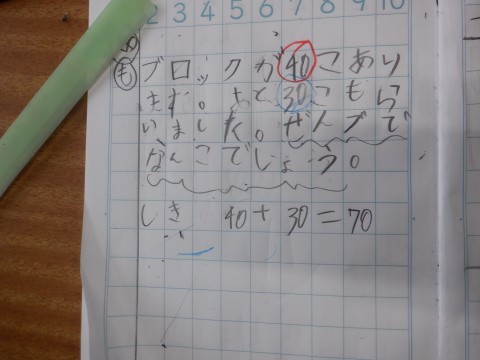 2 3 4 5 6 7 8 9 10
も ブロックが40こあり
ます。あと30こもら
いました。ぜんブで
なんこでしょう。
しき 40+30=70